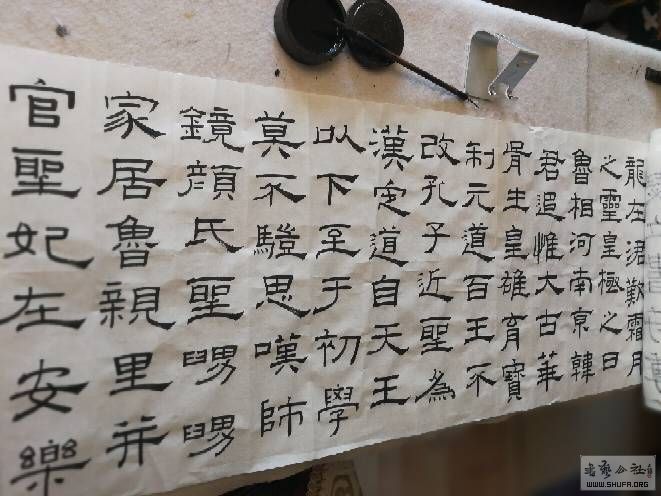 龍在涒歎霜月
之靈皇極之日
魯相河南京韓
君追惟大古華
胥生皇雄育寶
制元道百王不
改孔子近聖為
漢定道自天王
以下至于初學
莫不驥思嘆師
鏡顏氏聖舅舅
家居魯親里并
官聖妃在安樂
WWW.SHUFA.ORG